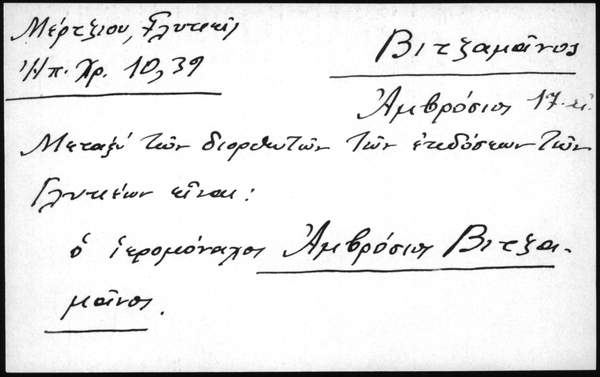 Μέρτζιου, Γλυκεῖς
Ἠπ. Χρ. 10, 39
Βιτζαμᾶνος
Ἀμβρόσιος 17. αἰ.
Μεταξὺ τῶν διορθωτῶν τῶν ἐκδόσεων τῶν
Γλυκέων εἶναι:
ὁ ἱερομόναχος Ἀμβρόσιος Βιτζα-
μᾶνος.